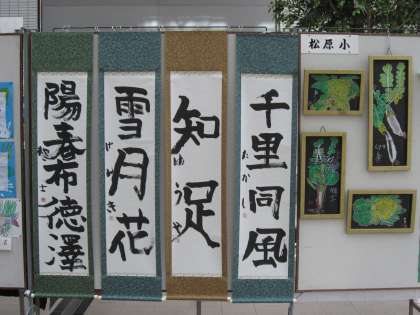 松原小
千里同風
たかし
知足
雪月花
陽春布徳澤